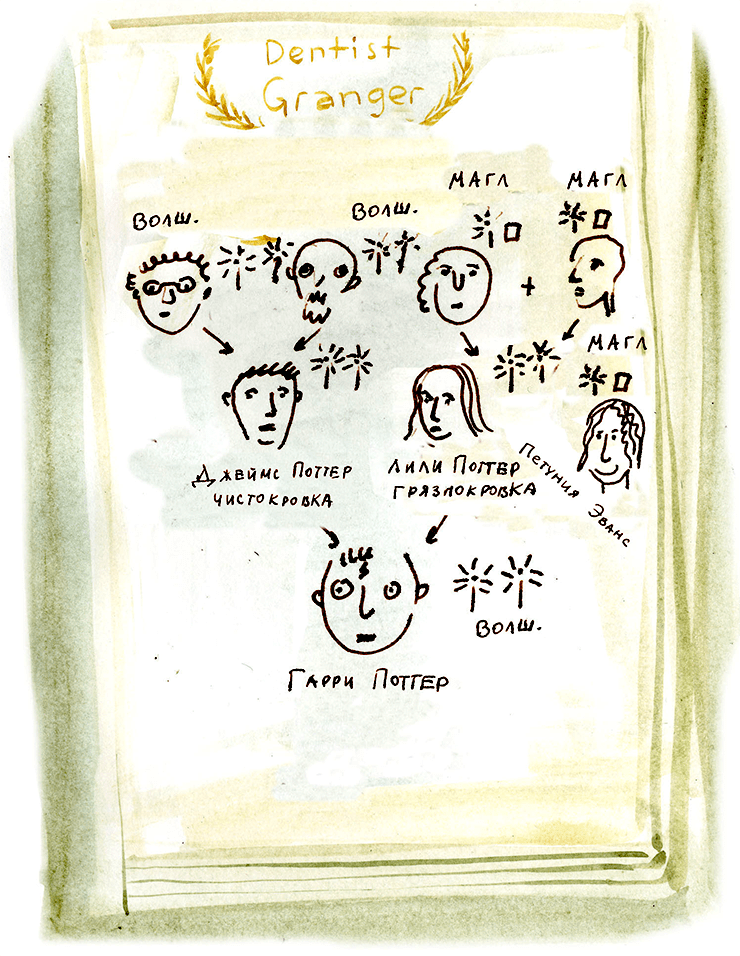 Dentist
Granger
МАГЛ
МАГЛ
ВОЛШ.
ВОЛШ.
МАГЛ
Джеймс Поттер
чистокровка
Лили Поттер
грязлокровка
Петуния
Эванс
ВОЛШ.
Гарри Поттер